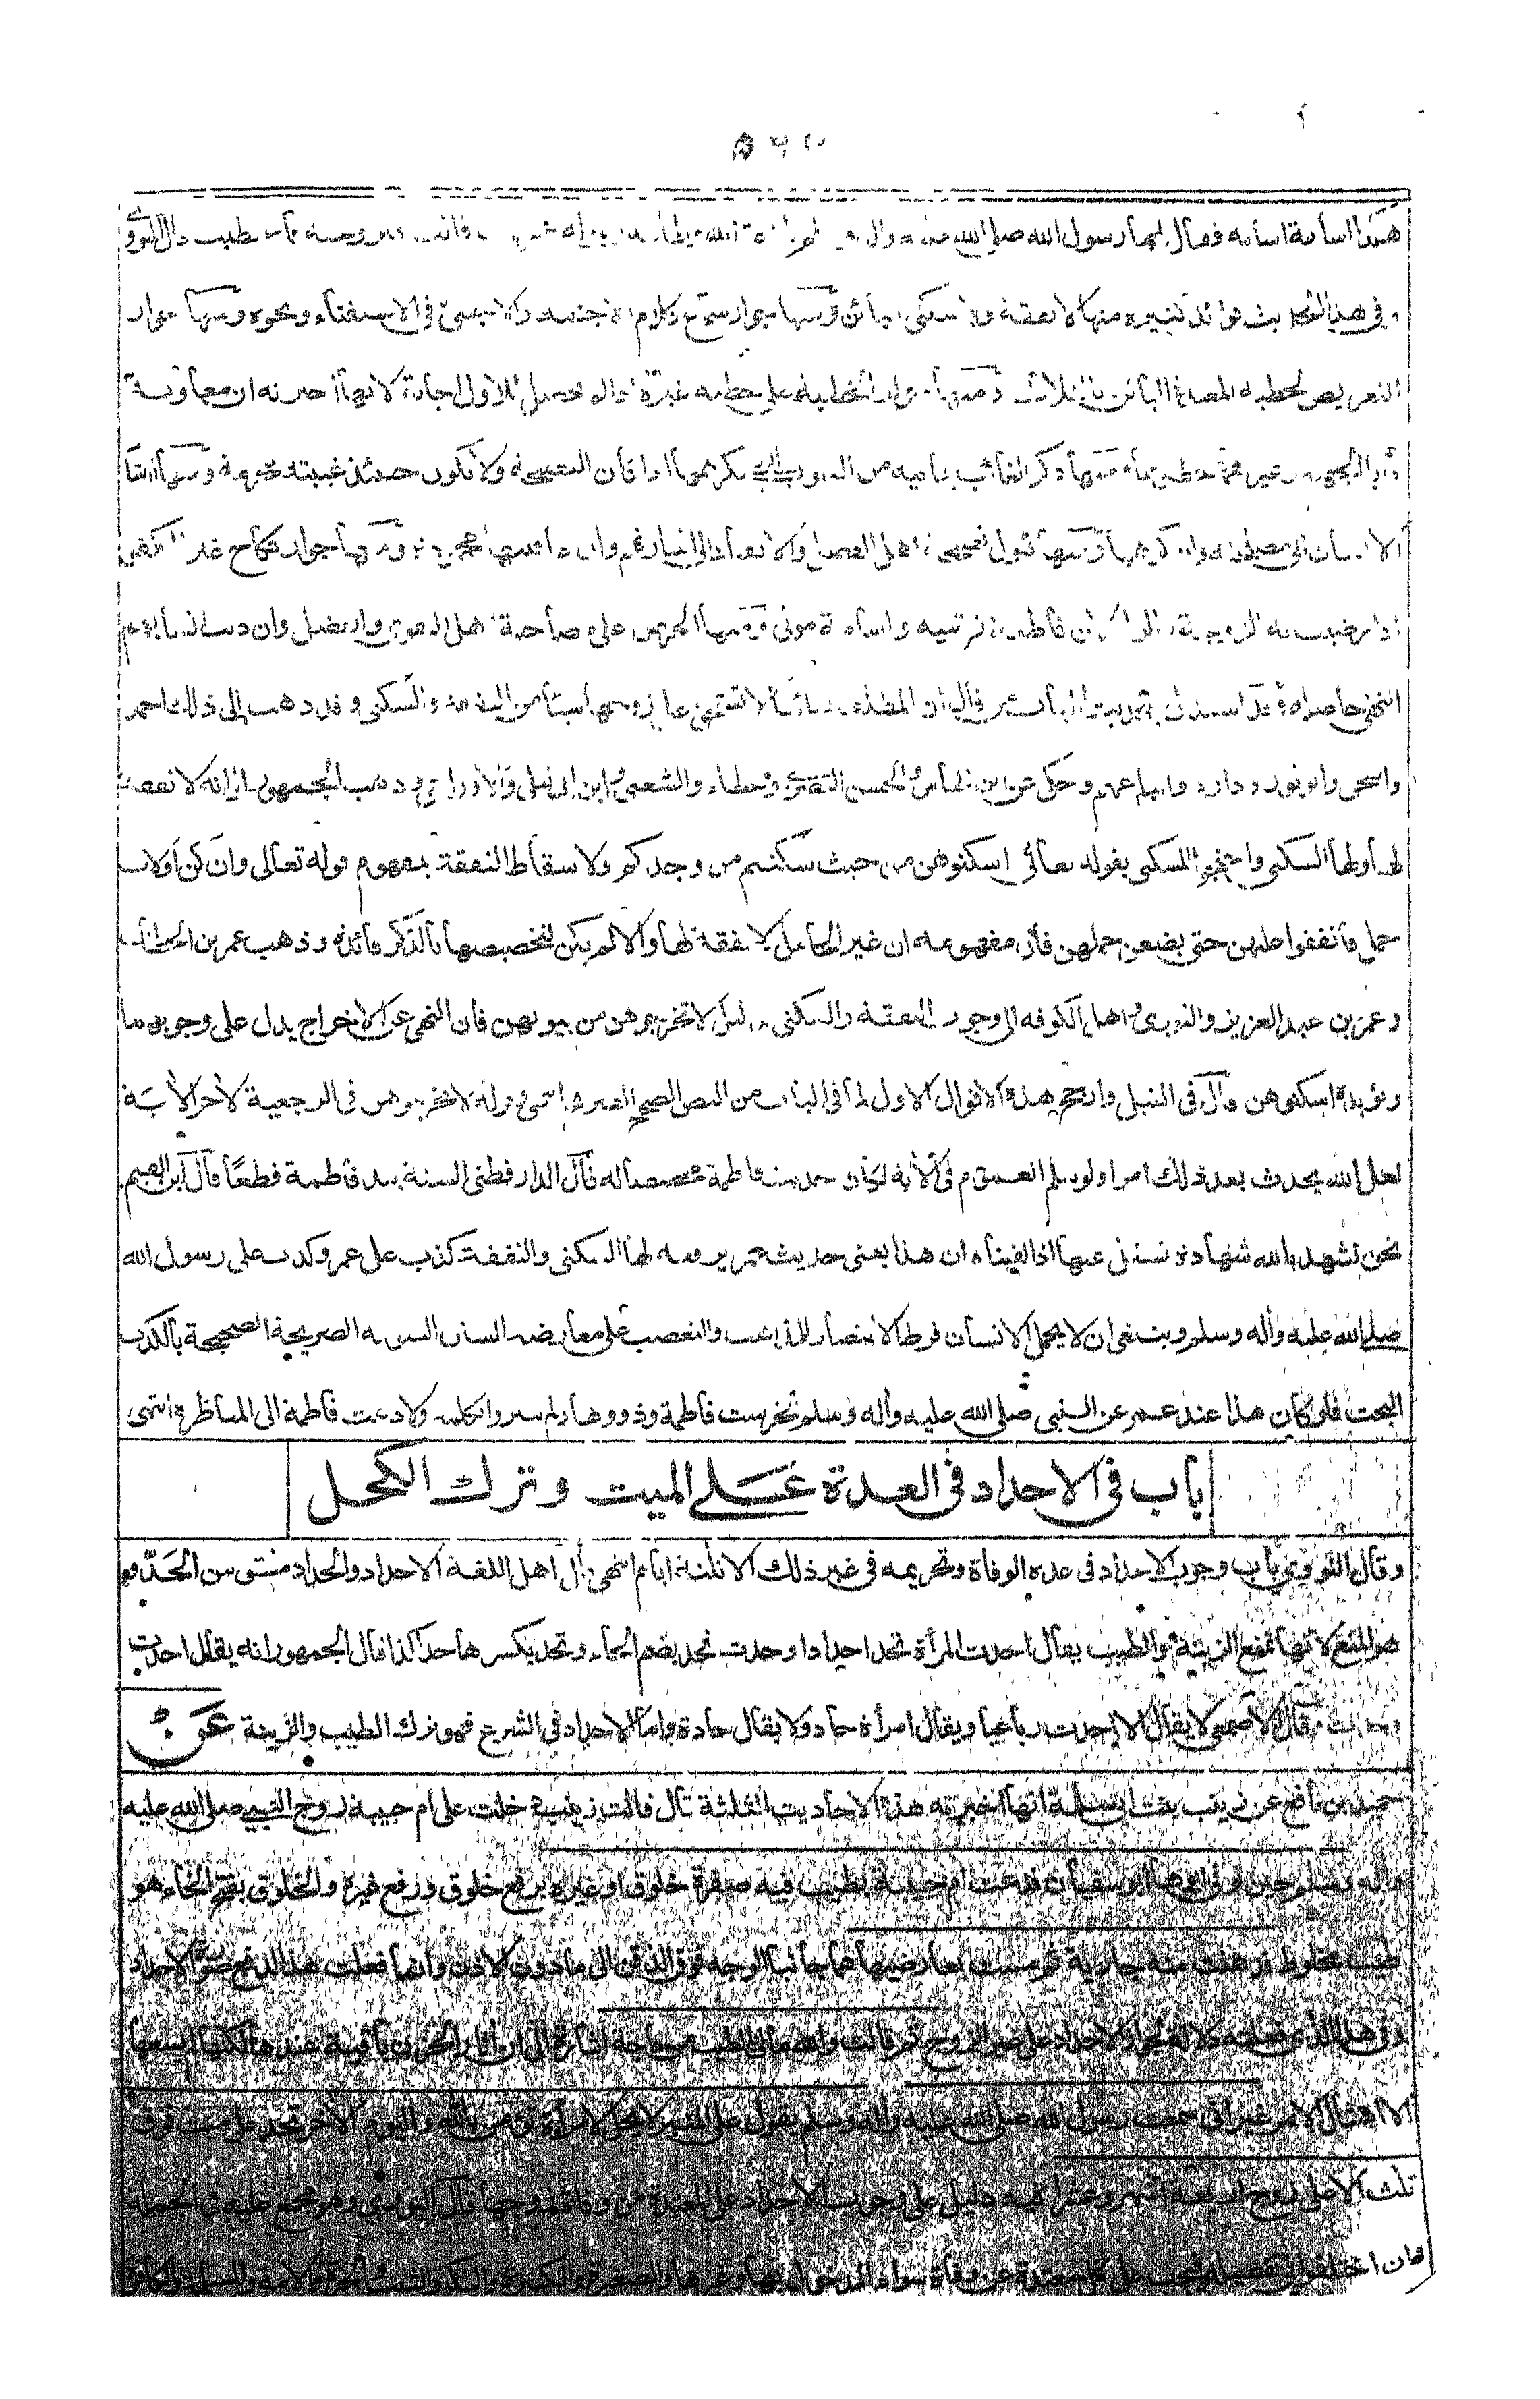 هكذا اسامة اسامة فقال لها رسول الله صلى الله عليه واله
وفي هذا الحديث فوائد كثيرة منها لا نفقة ولا سكنى للبائن ومنها جواز سماع كلام الاجنبية والاجنبي في الاستفتاء ونحوه ومنها جواز
التعريض لخطبة المعتدة البائن بالثلاث ومنها جواز الخطبة على خطبة غيره اذا لم يحصل للاول اجابة لانها اخبرته ان معاوية
وابا الجهم وغيرهما خطبوها ومنها ذكر الغائب بما فيه من العيوب التي يكرهها اذا كان للنصيحة ولا يكون حينئذ غيبة محرمة ومنها
الانسان الى مصلحته وان كرهها ومنها قبول نصيحة اهل الفضل والانقياد الى اشارتهم وان عاقبتها محمودة ومنها جواز نكاح غير الكفؤ
اذا رضيت به الزوجة لان فاطمة قرشية واسامة مولى ومنها الحرص على مصاحبة اهل التقوى والفضل وان دنت انسابهم
انتهى حاصله وقد استدل بحديث الباب من قال ان المطلقة بائنا لا تستحق على زوجها شيئا من النفقة والسكنى وقد ذهب الى ذلك احمد
واسحق وابو ثور وداود واتباعهم وحكي عن ابن عباس والحسن البصري وعطاء والشعبي وابن ابي ليلى والاوزاعي وذهب الجمهور الى انه لا نفقة
لها ولها السكنى واحتجوا للسكنى بقوله تعالى اسكنوهن من حيث سكنتم من وجدكم ولاسقاط النفقة بمفهوم قوله تعالى وان كن اولات
حمل فانفقوا عليهن حتى يضعن حملهن فان مفهومه ان غير الحامل لا نفقة لها والا لم يكن لتخصيصها بالذكر فائدة وذهب عمر بن الخطاب
وعمر بن عبد العزيز والثوري واهل الكوفه الى وجوب النفقة والسكنى لا تخرجوهن من بيوتهن فان النهي عن الاخراج يدل على وجوبهما
ويؤيده اسكنوهن قال في النيل وارجح هذه الاقوال الاول لما في الباب من النص الصحيح الصريح انتهى وقوله لا تخرجوهن في الرجعية لاخر الآية
لعل الله يحدث بعد ذلك امرا ولو سلم العموم في الآية لكان حديث فاطمة مخصصا له قال الدارقطني السنة بيد فاطمة قطعا قال ابن القيم
نحن نشهد بالله شهادة نسئل عنها اذا لقيناه ان هذا يعني حديث عمر يرويه لها السكنى والنفقة كذب على عمر وكذب على رسول الله
صلى الله عليه وآله وسلم وينبغي ان لا يحمل الانسان فرط الانتصار للمذاهب والتعصب على معارضة السنن النبوية الصريحة الصحيحة بالكذب
البحت فلو كان هذا عند عمر عن النبي صلى الله عليه وآله وسلم لخرست فاطمة وذووها ولم ينبسوا بكلمة ولا دعت فاطمة الى المناظرة انتهى
باب في الاحداد في العدة على الميت وترك الكحل
وقال النووي باب وجوب الاحداد في عدة الوفاة وتحريمه في غير ذلك الا ثلثة ايام انتهى قال اهل اللغة الاحداد والحداد مشتق من الحد وهو
هو المنع لانها تمنع الزينة والطيب يقال احدت المرأة تحد احدادا وحدت تحد بضم الحاء وتحد بكسرها حدا كذا قال الجمهور انه يقال احدت
وحدت وقال الاصمعي لا يقال الا احدت رباعيا ويقال امرأة حاد ولا يقال حادة واما الاحداد في الشرع فهو ترك الطيب والزينة عن
حميد بن نافع عن زينب بنت ابي سلمة انها اخبرته هذه الاحاديث الثلثة قال قالت زينب دخلت على ام حبيبة زوج النبي صلى الله عليه
وآله وسلم حين توفي ابوها ابو سفيان فدعت ام حبيبة بطيب فيه صفرة خلوق او غيره برفع خلوق ورفع غيره والخلوق بفتح الخاء هو
طيب مخلوط فدهنت منه جارية ثم مست بعارضيها هما جانبا الوجه فوق الذقن الى ما دون الاذن وانما فعلت هذا لدفع صورة الاحداد
وفي هذا الذي فعلته دلالة لجواز الاحداد على غير الزوج ثم قالت والله مالي بالطيب من حاجة اشارة الى ان آثار الحزن باقية عندها لكنها لم يسعها
الا امتثال الامر غير اني سمعت رسول الله صلى الله عليه وآله وسلم يقول على المنبر لا يحل لامرأة تؤمن بالله واليوم الآخر تحد على ميت فوق
ثلث الا على زوج اربعة اشهر وعشرا فيه دليل على وجوب الاحداد على المعتدة من وفاة زوجها قال النووي وهو مجمع عليه في الجملة
وان اختلفوا في تفصيله فيجب على كل معتدة عن وفاة سواء المدخول بها وغيرها والصغيرة والكبيرة والبكر والثيب والحرة والامة والمسلمة والكافرة